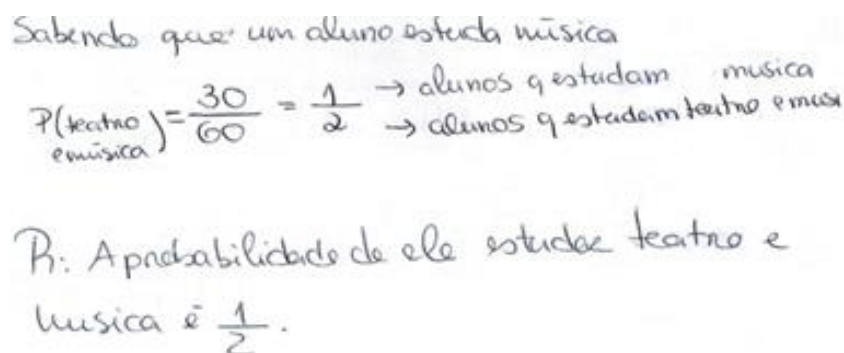 Sabendo que um aluno estuda música
P(teatro e música) = 30/60 = 1/2 → alunos q estudam musica
→ alunos q estudam teatro e musi
R: A probabilidade de ele estudar teatro e
musica é 1/2.